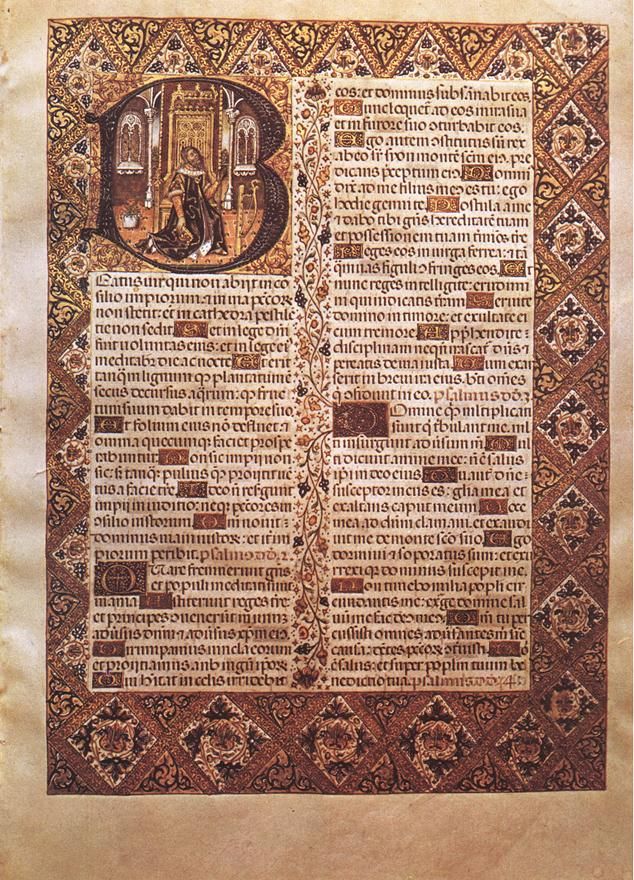 B
Eatus vir qui non abijt in co
silio impiorum: ⁊ in via peccor
non stetit: et in cathedra pestile
tie non sedit. Set in lege dni
fuit voluntas eius: et in lege ei
meditabr die ac nocte. Et erit
tanq̄ lignum qd plantatum ē
secus decursus aqrum: qd fruc
tum suum dabit in tempore suo
Et folium eius no defluet: ⁊
omnia quecumqz faciet prospe
rabuntur. Non sic impij non
sic: sȝ tanqz puluis que proijcit ve
tus a facie tre. Ideo n resurgunt
impij in iuditio: neqz peccores in
cosilio iustorum. Qm nouit
dominus viam iustorum: et iter im
piorum peribit. psalmus dd. 2.
Quare fremuerunt gētes
et populi meditati sunt
inania. Astiterunt reges tre
et principes conuenerūt in vnum
aduersus dnm ⁊ aduersus xpm eius.
Dirumpamus vincla eorum
et proijciamus a nob iugum ipor
Qui habitat in celis irridebit
eos: et dominus subsanabit eos.
Tunc loquet ad eos in ira sua
et in furore suo cturbabit eos.
Ego autem cstitutus sū rex
ab eo sr syon monte scm eī: pre
dicans preceptum eī. Dominꝰ
dix ad me filius meus es tu: ego
hodie genui te. Postula a me
⁊ dabo tibi gētes hereditatē tuam
et possessionem tuam tīmos tre
Reges eos in virga ferrea: ⁊ tā
quā vas figuli cfringes eos. Et
nunc reges intelligite: erudimī
qui iudicatis terram. Seruite
domino in timore: et exultate ei
cum tremore. Apphendite
disciplinam nequn irascat dns ⁊
pereatis de via iusta. Cum exar
serit in breui ira eius: bti omēs
qui cfidunt in eo. psalmus dd. 3.
Domine qd mltiplicati
sunt qui tribulant me: mlti
insurgunt aduersum me. Mul
ti dicunt anime mee: nō ē salus
ipi in deo eius. Tu aut dne
susceptor meus es: glia mea et
exaltans caput meum. Voce
mea ad dnm clamaui: et exaudi
uit me de monte scō suo. Ego
dormiui ⁊ soporatus sum: et exur
rexi qr dominus suscepit me.
Non timebo milia popli cir
cundantis me: exurge domine sal
uum me fac deus meus. Qm tu per
cussisti omnes aduersantes mī sine
causa: dētes peccor ctriuisti. Dni
ē salus: et super popłm tuum be
nedictio tua. psalmus dd. 4.